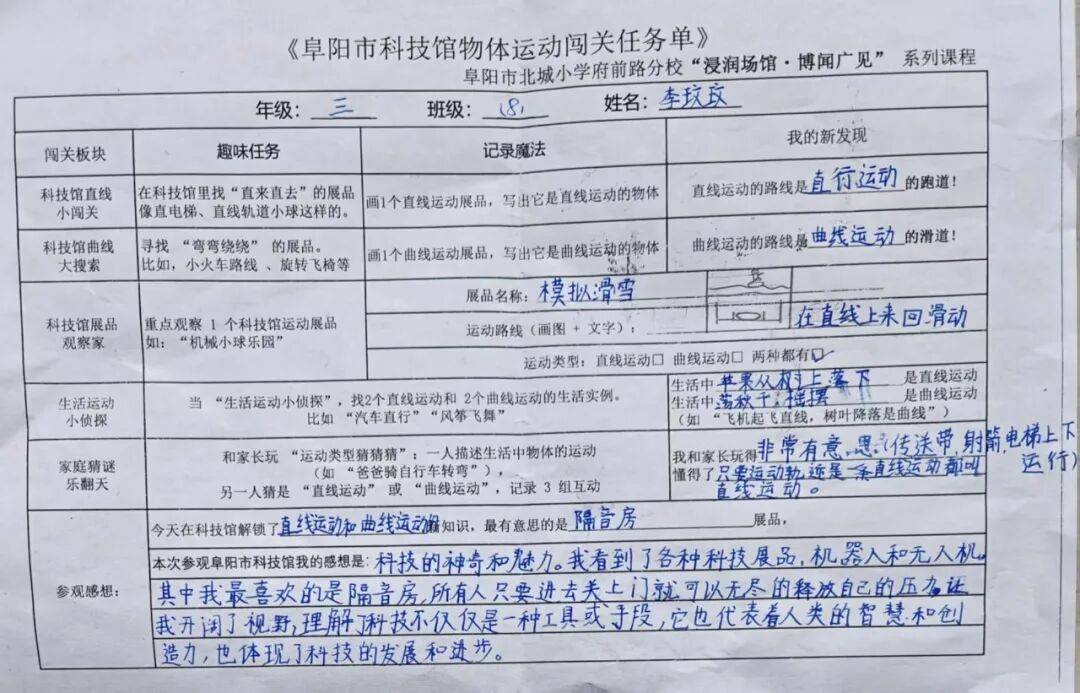 《阜阳市科技馆物体运动闯关任务单》
阜阳市北城小学府前路分校“浸润场馆·博闻广见” 系列课程
年级：三 班级：（8） 姓名：李玟玟
闯关板块 趣味任务 记录魔法 我的新发现
科技馆直线
小闯关
在科技馆里找“直来直去”的展品
像直电梯、直线轨道小球这样的。
画1个直线运动展品，写出它是直线运动的物体
直线运动的路线是直行运动的跑道！
科技馆曲线
大搜索
寻找 “弯弯绕绕” 的展品。
比如，小火车路线 、旋转飞椅等
画1个曲线运动展品，写出它是曲线运动的物体
曲线运动的路线是曲线运动的滑道！
科技馆展品
观察家
重点观察 1 个科技馆运动展品
如：“机械小球乐园”
展品名称：模拟滑雪
运动路线（画图 + 文字）： 在直线上来回滑动
运动类型：直线运动□ 曲线运动□ 两种都有☑
生活运动
小侦探
当 “生活运动小侦探”，找2个直线运动和 2个曲线运动的生活实例。
比如 “汽车直行” “风筝飞舞”
生活中苹果从树上落下 是直线运动
生活中荡秋千，摇摆 是曲线运动
（如 “飞机起飞直线，树叶降落是曲线”）
家庭猜谜
乐翻天
和家长玩 “运动类型猜猜猜”：一人描述生活中物体的运动
（如 “爸爸骑自行车转弯”），
另一人猜是 “直线运动” 或 “曲线运动”，记录 3 组互动
我和家长玩得非常有意思。（传送带，射箭，电梯上下运行）
懂得了只要运动轨迹是一条直线运动都叫
直线运动。
参观感想：
今天在科技馆解锁了直线运动和曲线运动的新知识，最有意思的是 隔音房 展品，
本次参观阜阳市科技馆我的感想是：科技的神奇和魅力。我看到了各种科技展品，机器人和无人机。
其中我最喜欢的是隔音房，所有人只要进去关上门就可以无尽的释放自己的压力。让
我开阔了视野，理解了科技不仅仅是一种工具或手段，它也代表着人类的智慧和创
造力，也体现了科技的发展和进步。